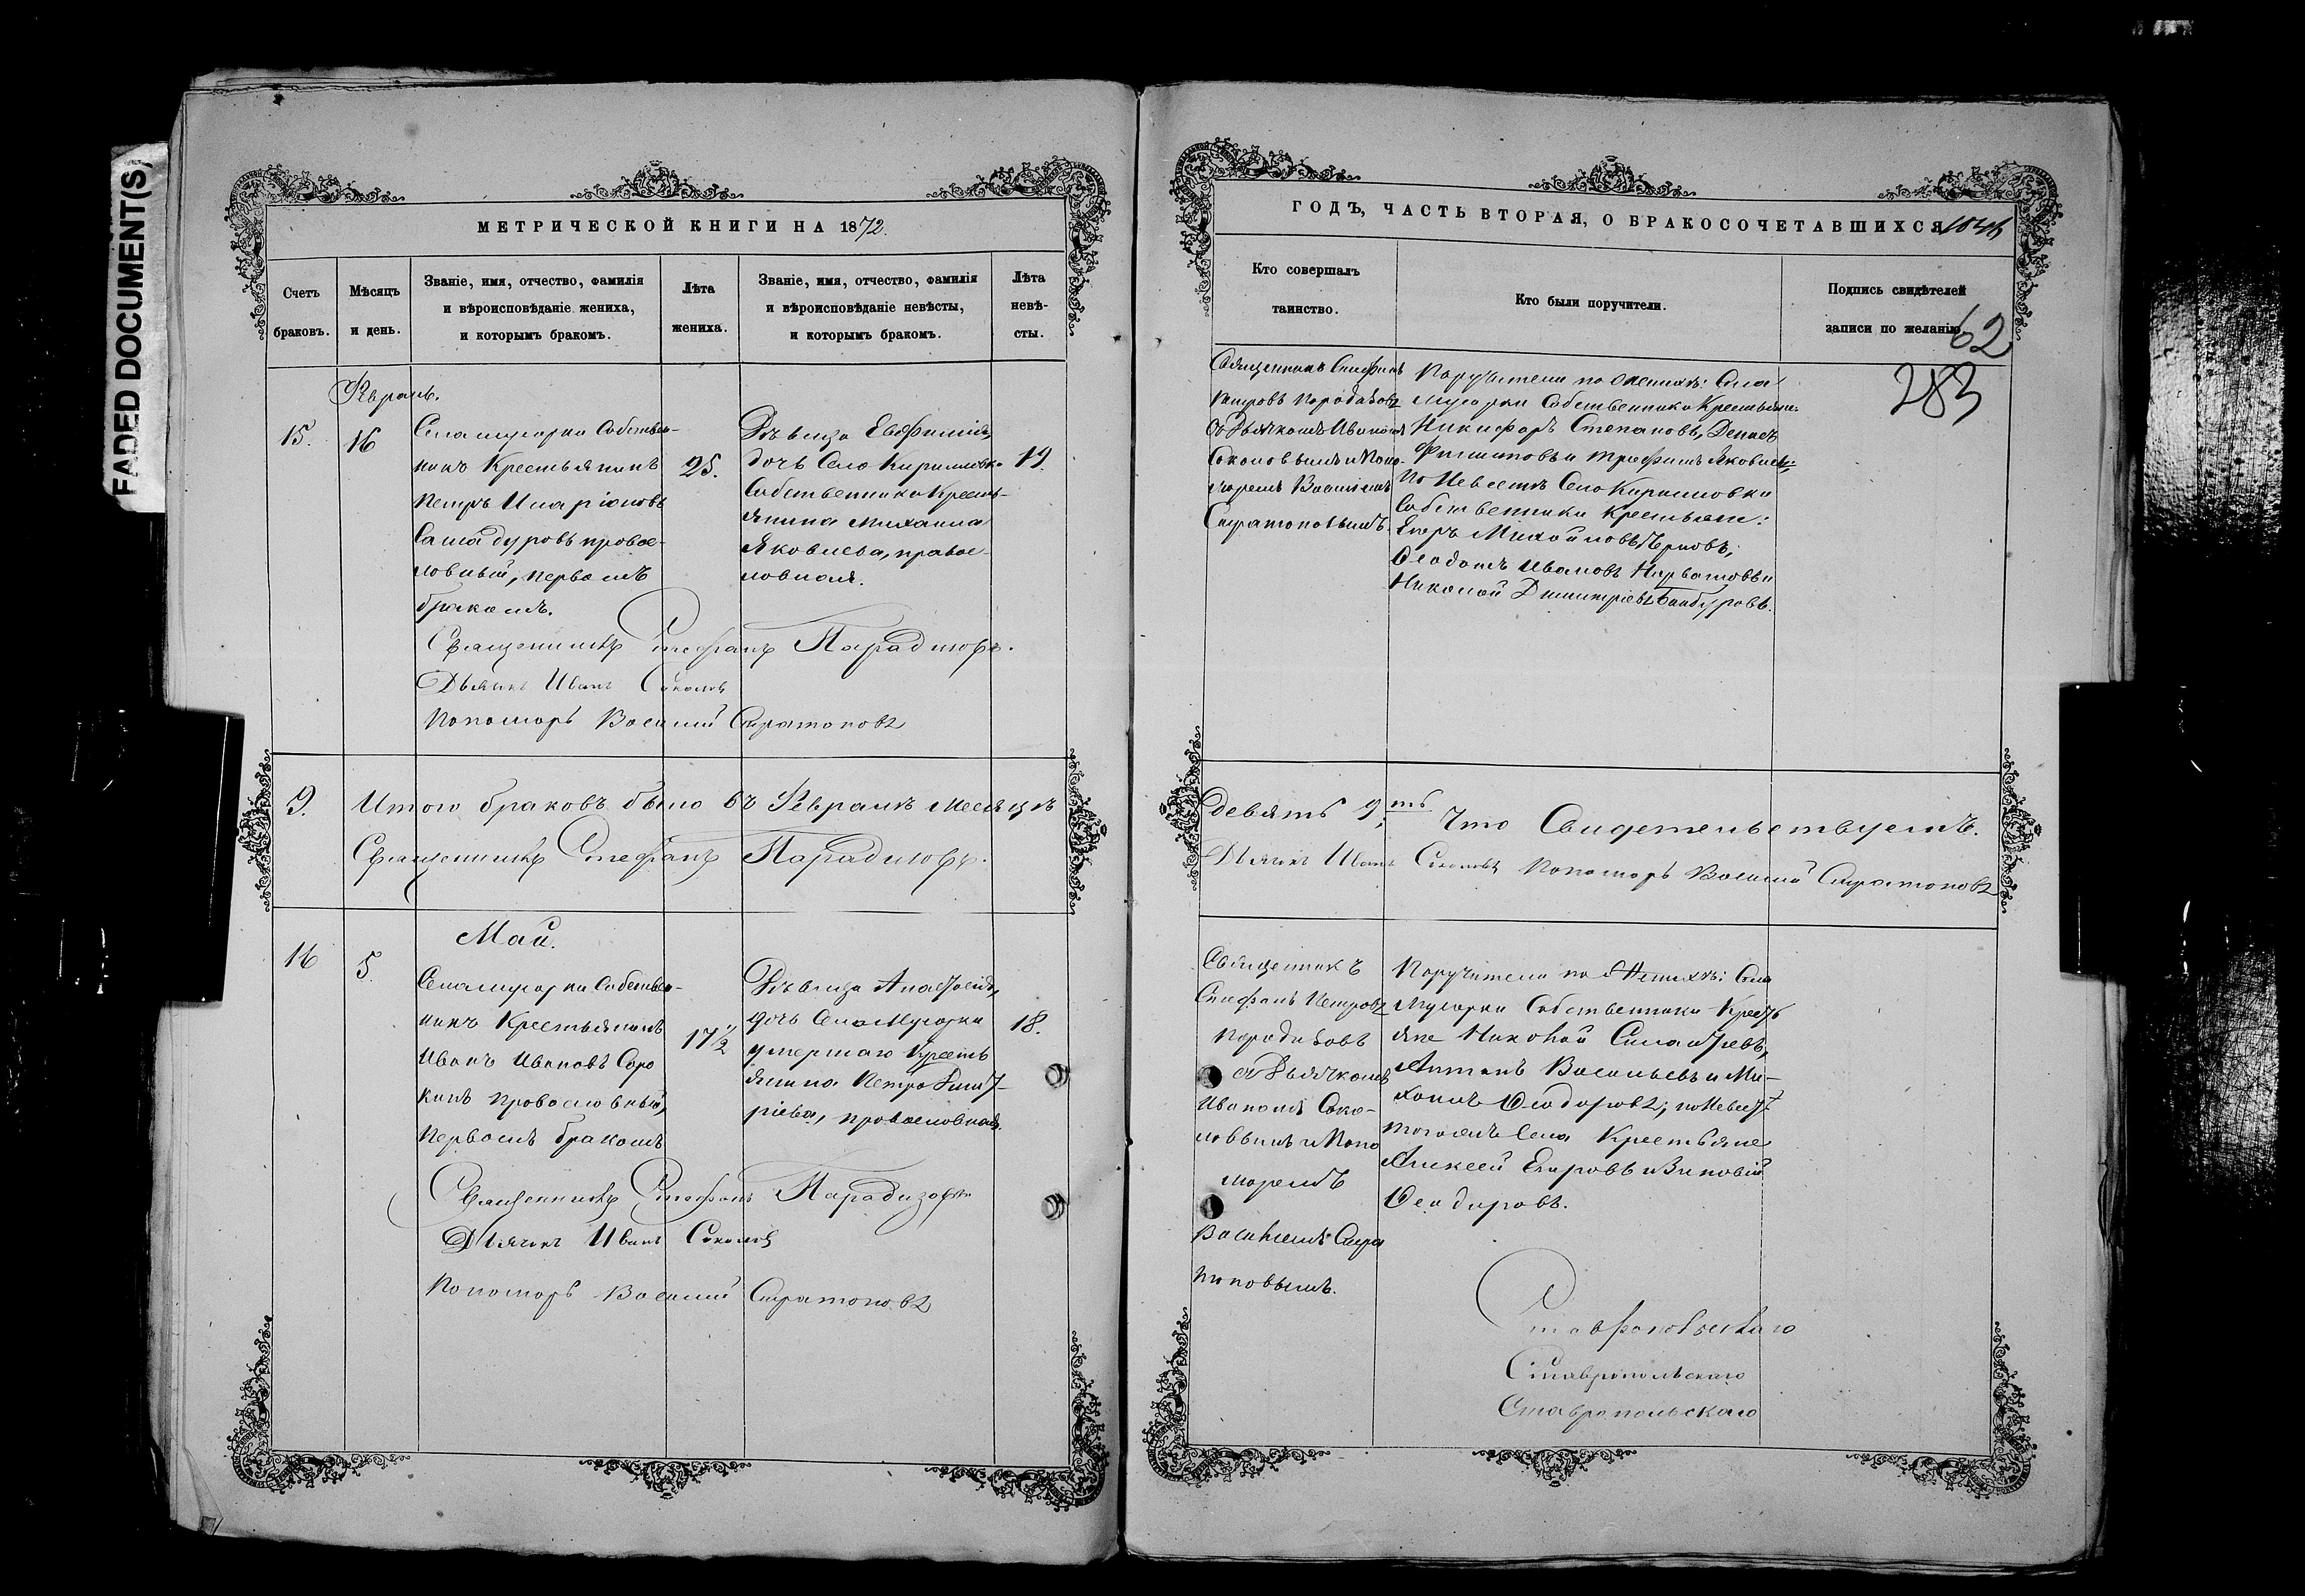 FADED DOCUMENT(S)
МЕТРИЧЕСКОЙ КНИГИ НА 1872.
Счетъ браковъ.
Мѣсяцъ и день.
Званіе, имя, отчество, фамилія и вѣроисповѣданіе жениха, и которымъ бракомъ.
Лѣта жениха.
Званіе, имя, отчество, фамилія и вѣроисповѣданіе невѣсты, и которымъ бракомъ.
Лѣта невѣ-
сты.
Февраль.
15.
16
Села мусорки Собствен-
никъ Крестьянинъ
Петръ Иларіоновъ
провос-
ловный, первымъ
бракомъ.
25.
Дѣвица Евфимія,
дочь Села Кириловки
Собственника Кресть-
янина Михаила
Яковлева, правос-
ловная.
19.
Священникъ Стефанъ Парадизовъ.
Дьячекъ Иванъ Соколовъ
Пономарь Василий Стратоновъ
9.
Итого браковъ было въ Февралѣ месяцѣ
Священникъ Стефанъ Парадизовъ.
Май.
16
5.
Села мусорки Собствен-
никъ Крестьянинъ
Иванъ Ивановъ Соро
кинъ провословный,
первымъ бракомъ
17 1/2
Дѣвица Анастасія,
дочь Села Мусорки
умершаго Кресть
янина Петра Димит-
ріева, провословная.
18.
Священникъ Стефанъ Парадизовъ
Дьячекъ Иванъ Соколовъ
Пономарь Василий Стратоновъ
ГОДЪ, ЧАСТЬ ВТОРАЯ, О БРАКОСОЧЕТАВШИХСЯ
Кто совершалъ
таинство.
Кто были поручители.
Подпись свидѣтелей
записи по желанію
62
283
Священникъ Стефанъ
Петровъ Парадизовъ
съ Дьячкомъ Иваномъ
Соколовымъ и Поно-
маремъ Василіемъ
Стратоновымъ.
Поручители по Женихѣ: Села
Мусорки Собственники Крестьяне:
Никифоръ Степановъ, Денисъ
Филиповъ и Трофимъ Яковлевъ;
По Невестѣ Села Кириловки
Собственники Крестьяне:
Егоръ Михайловъ
Феодотъ Ивановъ
Николай Димитріевъ
Девять 9; ть Что Свидетельствуемъ.
Дьячекъ Иванъ Соколовъ Пономарь Василий Стратоновъ
Священникъ
Стефанъ Петровъ
Парадизовъ
съ Дьячкомъ
Иваномъ Соко-
ловымъ и Поно
маремъ
Василіемъ Стра
тоновымъ.
Поручители по Женихѣ: Села
Мусорки Собственники Кресть
яне Николай
Антонъ Васильевъ и Ми-
хаилъ Феодоровъ; по Невест
тогоже Села Крестьяне
Алексей Егоровъ и Зиновій
Феодоровъ.
Ставропольскаго
Ставропольскаго
Ставропольскаго